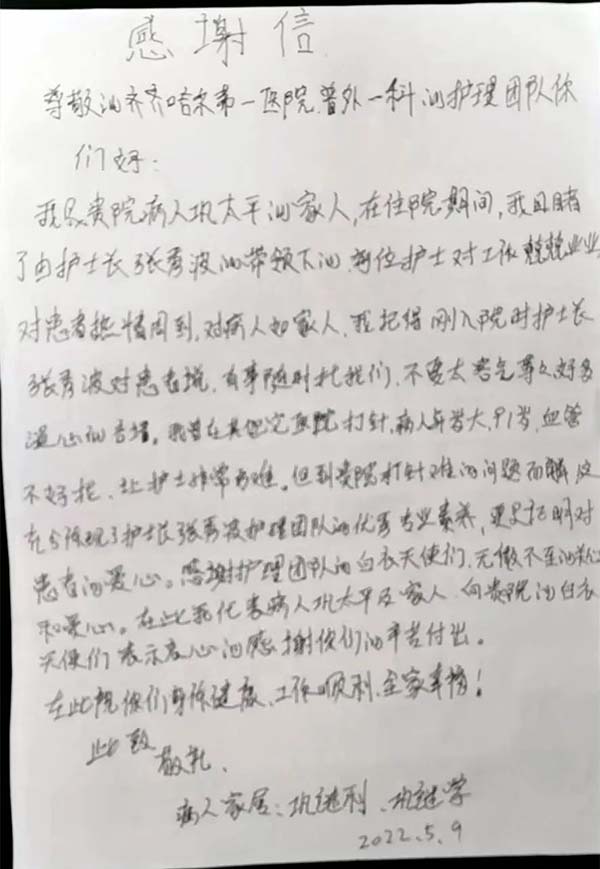 感谢信
尊敬的齐齐哈尔第一医院普外一科的护理团队你
们好:
我是贵院病人巩太平的家人,在住院期间,我目睹
了由护士长张秀波的带领下的每位护士对工作兢兢业业,
对患者热情周到,对病人如家人,我记得刚入院时护士长
张秀波对患者说,有事随时找我们,不要太客气等等好多
温心的言语。我曾在其他医院打针,病人年岁大,91岁,血管
不好找,让护士非常为难。但到贵院打针难的问题而解,这
充分体现了护士长张秀波护理团队的优秀专业素养,更是证明对
患者的爱心。感谢护理团队的白衣天使们,无微不至的关心
和爱心。在此我代表病人巩太平及家人,向贵院的白衣
天使们表示衷心的感谢你们的辛苦付出。
在此祝你们身体健康、工作顺利、全家幸福!
此致
敬礼,
病人家属:巩继利、巩继学
2022.5.9